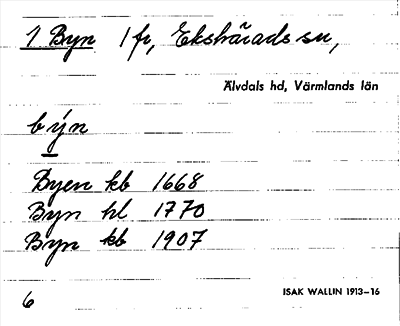 1 Byn 1 fr, Ekshärads sn,
Älvdals hd, Värmlands län
býn
Byen kb 1668
Byn hl 1770
Byn kb 1907
6 ISAK WALLIN 1913–16